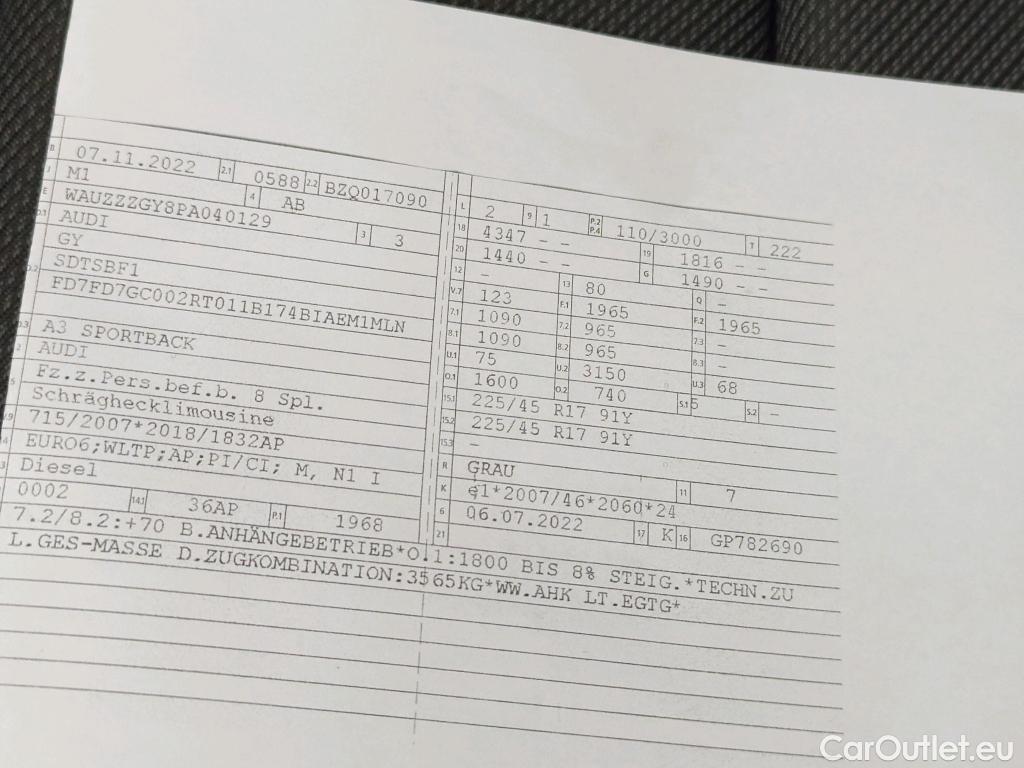 B 07.11.2022 2.1 0588 2.2 BZQ017090
J M1 4 AB
E WAUZZZGY8PA040129 3 3
D.1 AUDI
GY
D.2 SDTSBF1
FD7FD7GC002RT011B174BIAEM1MLN
D.3 A3 SPORTBACK
2 AUDI
5 Fz.z.Pers.bef.b. 8 Spl.
Schräghecklimousine
V.9 715/2007*2018/1832AP
14 EURO6;WLTP;AP;PI/CI; M, N1 I
P.3 Diesel
0002 14.1 36AP P.1 1968
L 2 9 1 P.2 P.4 110/3000 T 222
18 4347 - - 19 1816 - -
20 1440 - - G 1490 - -
12 - 13 80 Q -
V.7 123 F.1 1965 F.2 1965
7.1 1090 7.2 965 7.3 -
8.1 1090 8.2 965 8.3 -
U.1 75 U.2 3150 U.3 68
O.1 1600 O.2 740 S.1 5 S.2 -
15.1 225/45 R17 91Y
15.2 225/45 R17 91Y
15.3 -
R GRAU 11 7
K e1*2007/46*2060*24
6 06.07.2022 17 K 16 GP782690
21
7.2/8.2:+70 B.ANHÄNGEBETRIEB*O.1:1800 BIS 8% STEIG.*TECHN.ZU
L.GES-MASSE D.ZUGKOMBINATION:3565KG*WW.AHK LT.EGTG*
CarOutlet.eu